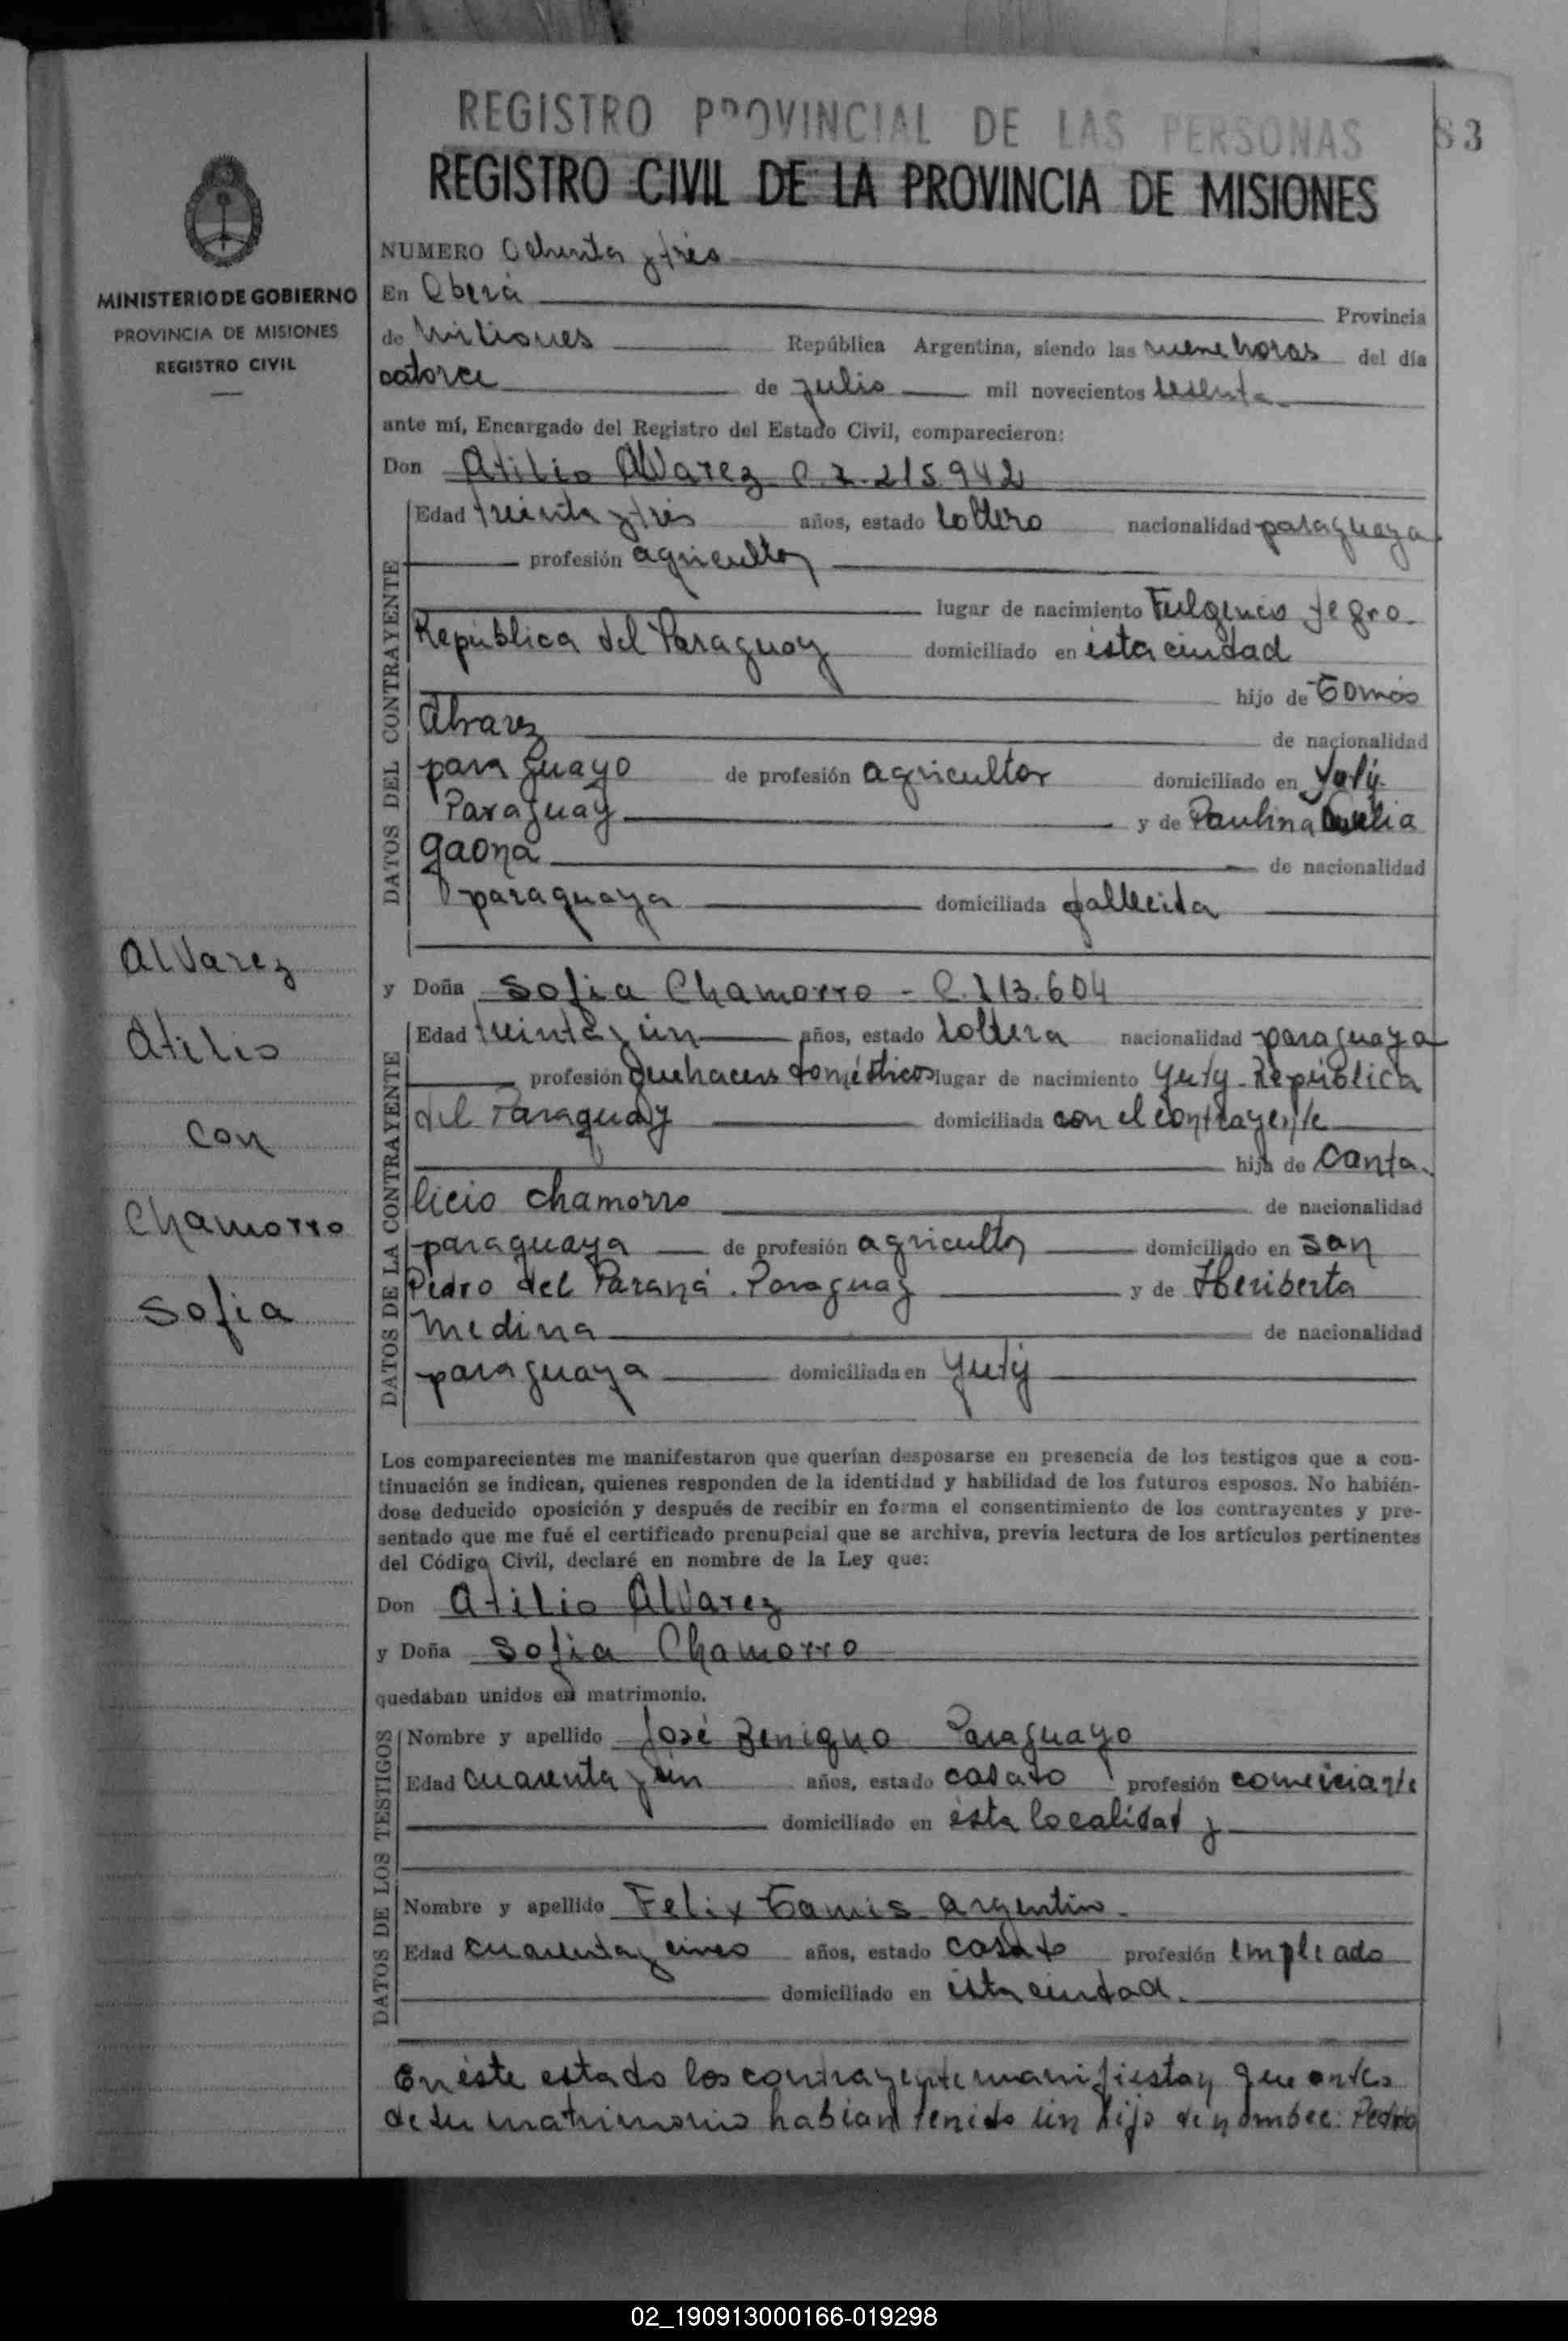 REGISTRO PROVINCIAL DE LAS PERSONAS
83
REGISTRO CIVIL DE LA PROVINCIA DE MISIONES
MINISTERIO DE GOBIERNO
PROVINCIA DE MISIONES
REGISTRO CIVIL
Alvarez
Atilio
con
Chamorro
Sofia
NUMERO Ochenta y tres
En Oberá Provincia
de Misiones República Argentina, siendo las nueve horas del día
catorce de julio mil novecientos sesenta
ante mí, Encargado del Registro del Estado Civil, comparecieron:
Don Atilio Alvarez C.I. 215942
DATOS DEL CONTRAYENTE
Edad treinta y tres años, estado soltero nacionalidad paraguaya
profesión agricultor
lugar de nacimiento Fulgencio Yegro.
República del Paraguay domiciliado en ésta ciudad
hijo de Tomás
Alvarez de nacionalidad
paraguayo de profesión agricultor domiciliado en Yuty.
Paraguay y de Paulina
gaona de nacionalidad
paraguaya domiciliada fallecida
y Doña Sofia Chamorro - C. 113.604
DATOS DE LA CONTRAYENTE
Edad treinta y ún años, estado soltera nacionalidad paraguaya
profesión quehaceres domésticos lugar de nacimiento Yuty. República
del Paraguay domiciliada con el contrayente
hija de Canta.
licio Chamorro de nacionalidad
paraguaya de profesión agricultor domiciliado en San
Pedro del Paraná. Paraguay y de Heriberta
Medina de nacionalidad
paraguaya domiciliada en Yuty
Los comparecientes me manifestaron que querían desposarse en presencia de los testigos que a con-
tinuación se indican, quienes responden de la identidad y habilidad de los futuros esposos. No habién-
dose deducido oposición y después de recibir en forma el consentimiento de los contrayentes y pre-
sentado que me fué el certificado prenupcial que se archiva, previa lectura de los artículos pertinentes
del Código Civil, declaré en nombre de la Ley que:
Don Atilio Alvarez
y Doña Sofia Chamorro
quedaban unidos en matrimonio.
DATOS DE LOS TESTIGOS
Nombre y apellido José Benigno Paraguayo
Edad cuarenta y ún años, estado casado profesión comerciante
domiciliado en ésta localidad y
Nombre y apellido Felix Tamis argentino.
Edad cuarenta y cinco años, estado casado profesión empleado
domiciliado en ésta ciudad.
En éste estado los contrayente manifiestan que antes
de su matrimonio habian tenido ún hijo de nombre: Pedro
02_190913000166-019298